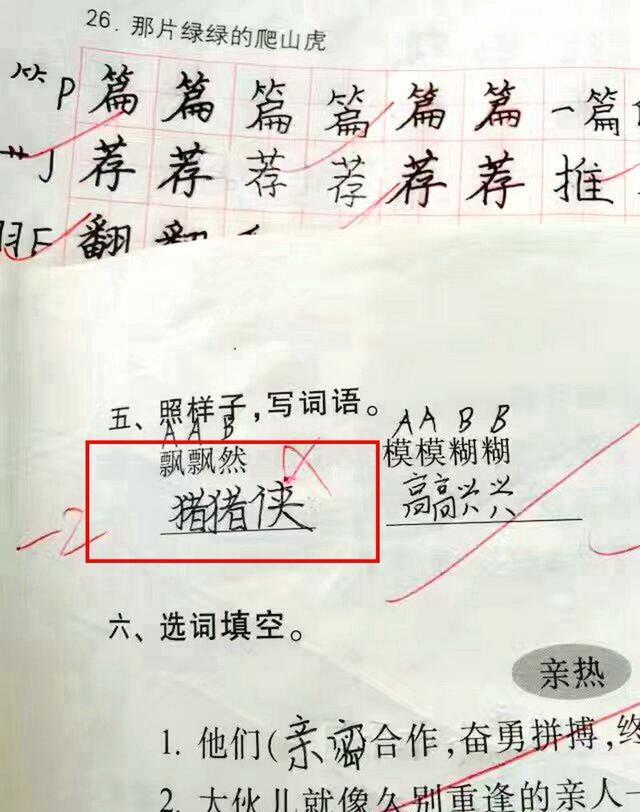 26. 那片绿绿的爬山虎
⺮ P 篇 篇 篇 篇 篇 篇 一篇
艹 J 荐 荐 荐 荐 荐 荐 推
羽 F 翻 翻
五、照样子,写词语。
A A B A A B B
飘飘然 模模糊糊
猪猪侠 高高兴兴
-2
六、选词填空。
亲热
1. 他们(亲密)合作,奋勇拼搏,终
2. 大伙儿就像久别重逢的亲人一